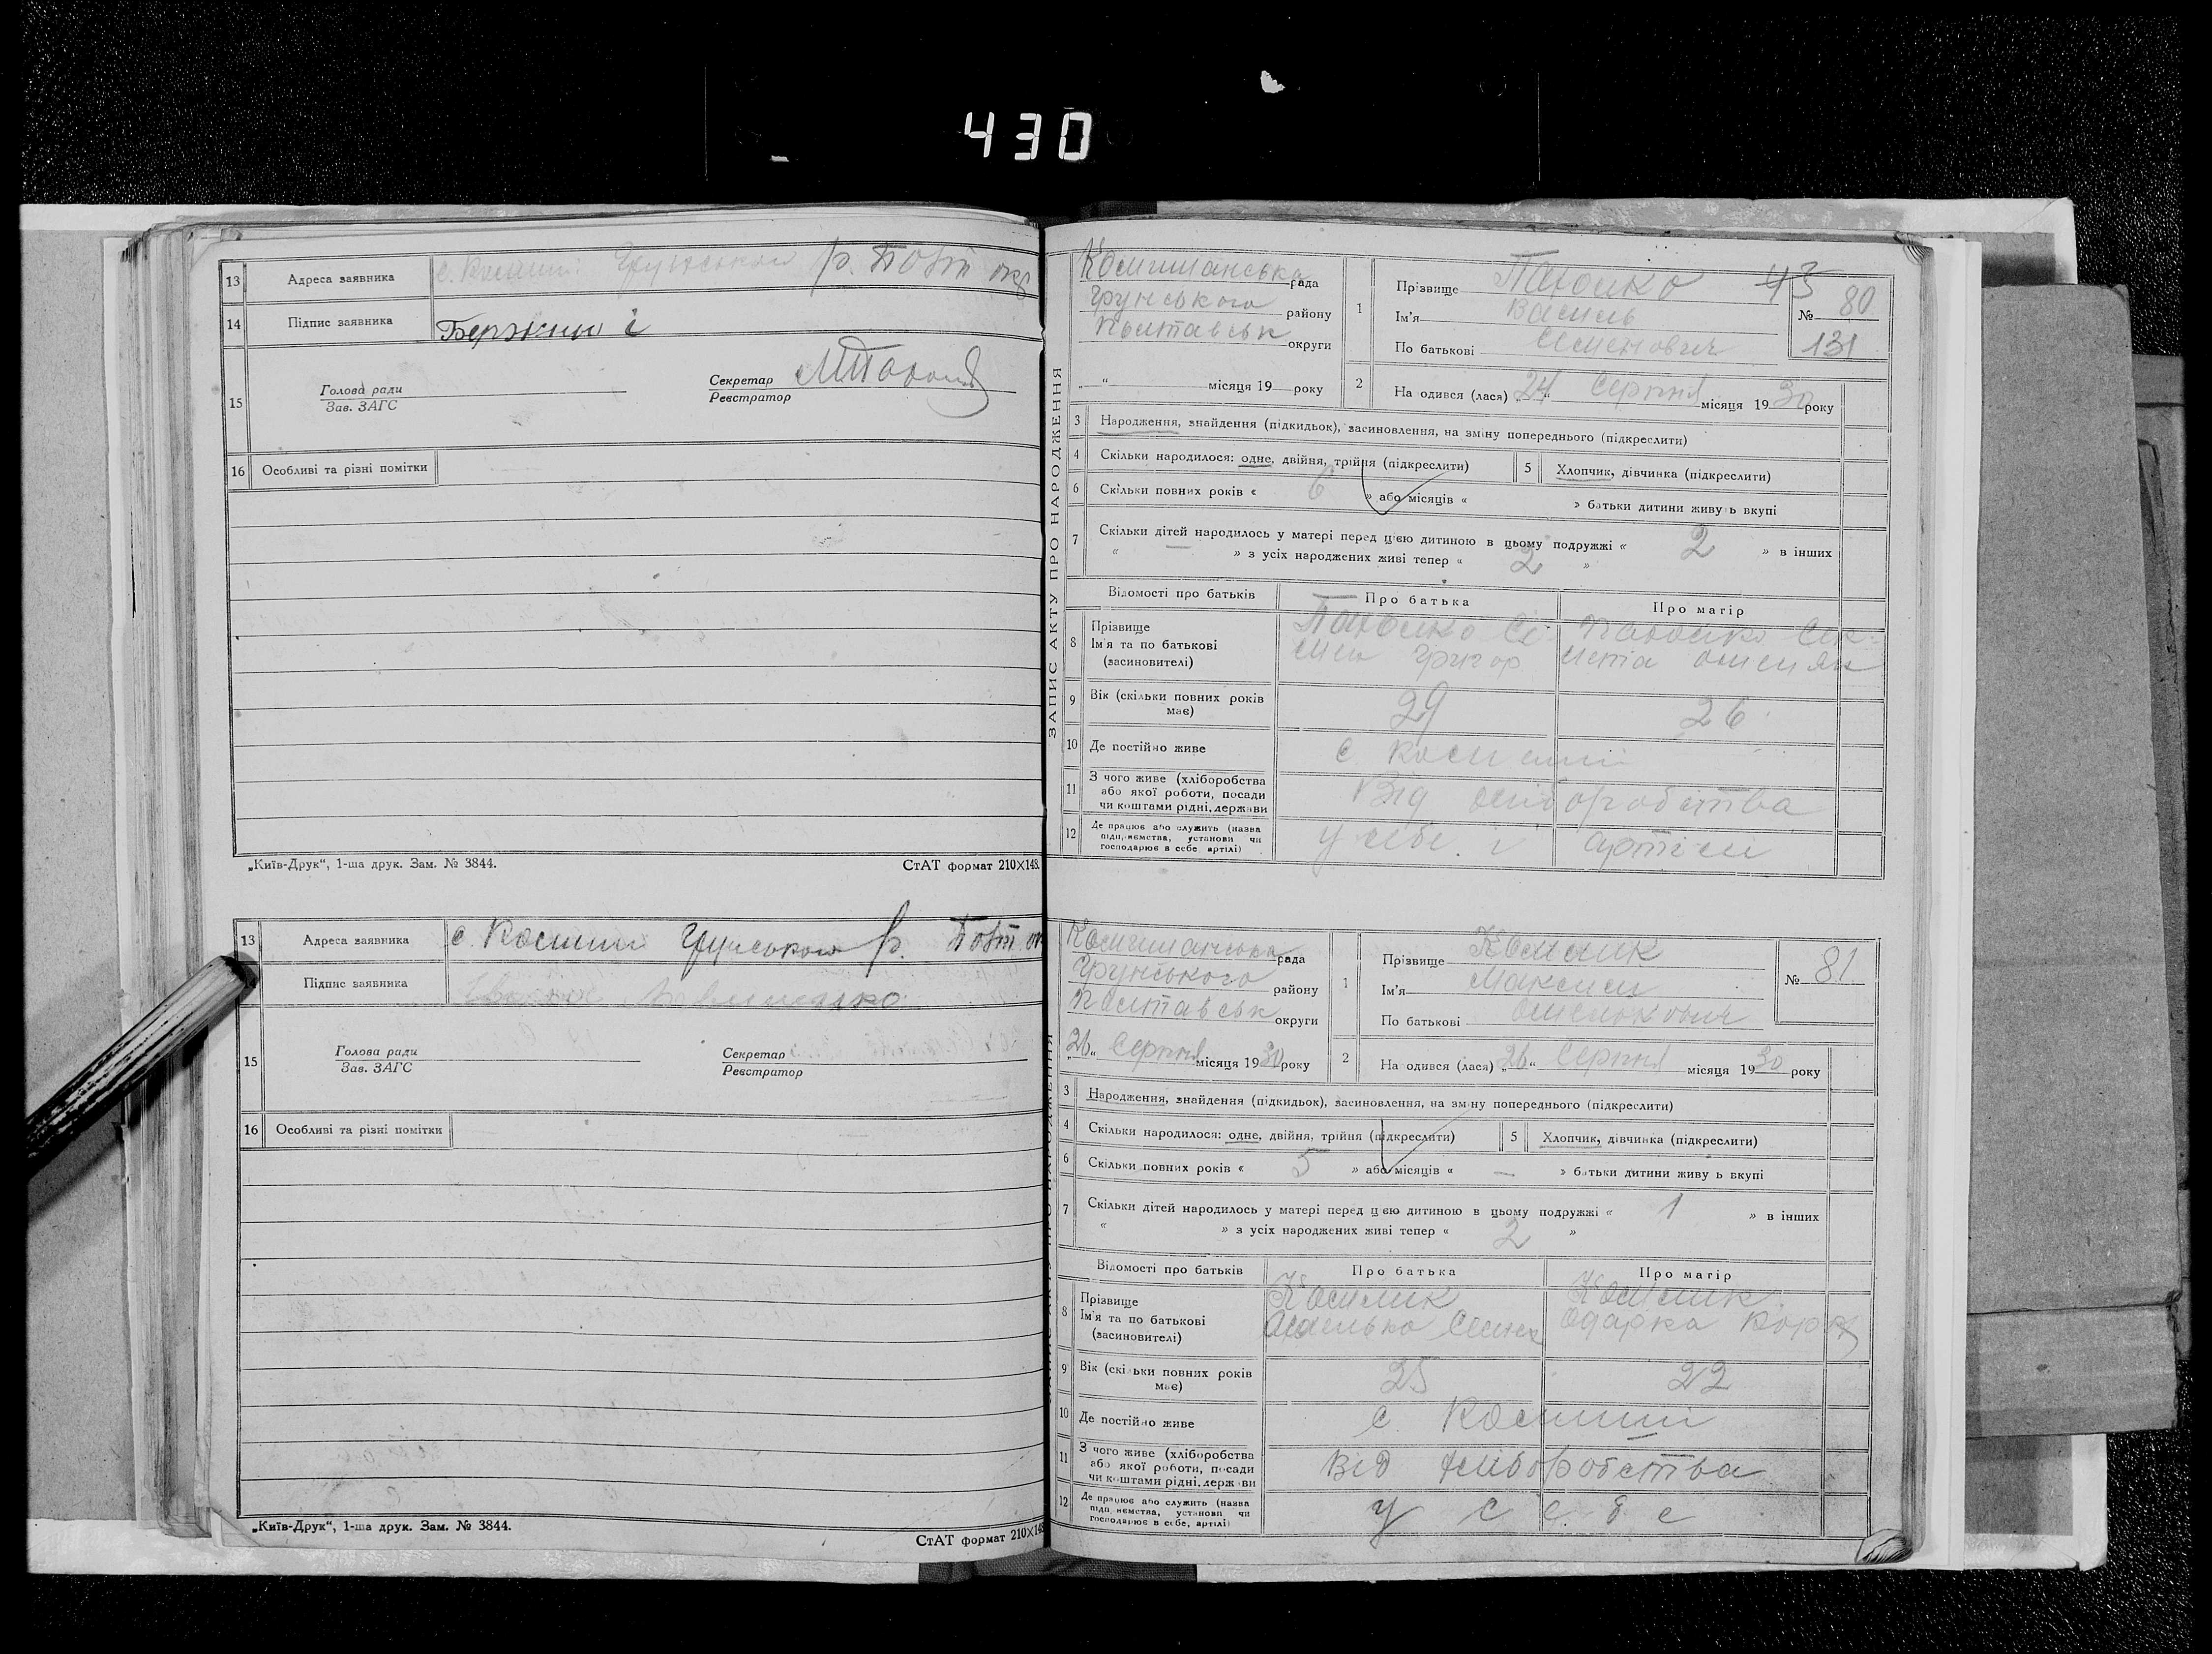 430
13 Адреса заявника с. Комиші Грунського р. Полт окр
14 Підпис заявника Бережний і
15 Голова ради
Зав. ЗАГС
Секретар
Реєстратор
16 Особливі та різні помітки
„Київ-Друк“, 1-ша друк. Зам. № 3844. СтАТ формат 210X148.
13 Адреса заявника с Комиші Грунського р. Полт. ок
Підпис заявника
15 Голова ради
Зав. ЗАГС
Секретар
Реєстратор
16 Особливі та різні помітки
„Київ-Друк“, 1-ша друк. Зам. № 3844. СтАТ формат 210X148
ЗАПИС АКТУ ПРО НАРОДЖЕННЯ
Комишанська рада
Грунського району
Полтавськ округи
„ “ місяця 19 року
1 Прізвище
Ім'я Василь
По батькові Семенович
43
№ 80
131
2 На одився (лася) 24 „ Серпня місяця 1930 року
3 Народження, знайдення (підкидьок), засиновлення, на зміну попереднього (підкреслити)
4 Скільки народилося: одне, двійня, трійня (підкреслити) 5 Хлопчик, дівчинка (підкреслити)
6 Скільки повних років « 6 » або місяців « » батьки дитини живуть вкупі
7 Скільки дітей народилось у матері перед цією дитиною в цьому подружжі « 2 » в інших
« — » з усіх народжених живі тепер « 2 »
Відомості про батьків Про батька Про матір
8 Прізвище
Ім'я та по батькові
(засиновителі)
9 Вік (скільки повних років має) 29 26
10 Де постійно живе с. Комиші
11 З чого живе (хліборобства або якої роботи, посади чи коштами рідні, держави Від хліборобства
12 Де працює або служить (назва підприємства, установи чи господарює в себе, артілі) у себе. і артіли
Комишанська рада
Грунського району
Полтавськ округи
26 „ Серпня місяця 1930 року
1 Прізвище
Ім'я Максим
По батькові Омелькович
№ 81
2 На одився (лася) „26“ Серпня місяця 1930 року
3 Народження, знайдення (підкидьок), засиновлення, на зміну попереднього (підкреслити)
4 Скільки народилося: одне, двійня, трійня (підкреслити) 5 Хлопчик, дівчинка (підкреслити)
6 Скільки повних років « 5 » або місяців « — » батьки дитини живу ь вкупі
7 Скільки дітей народилось у матері перед цією дитиною в цьому подружжі « 1 » в інших
« » з усіх народжених живі тепер « 2 »
Відомості про батьків Про батька Про матір
8 Прізвище
Ім'я та по батькові Омелько Семен Одарка
(засиновителі)
9 Вік (скільки повних років має) 25 22
10 Де постійно живе с. Комиші
11 З чого живе (хліборобства або якої роботи, посади чи коштами рідні, держави Від хліборобства
12 Де працює або служить (назва підприємства, установи чи господарює в себе, артілі) у себе